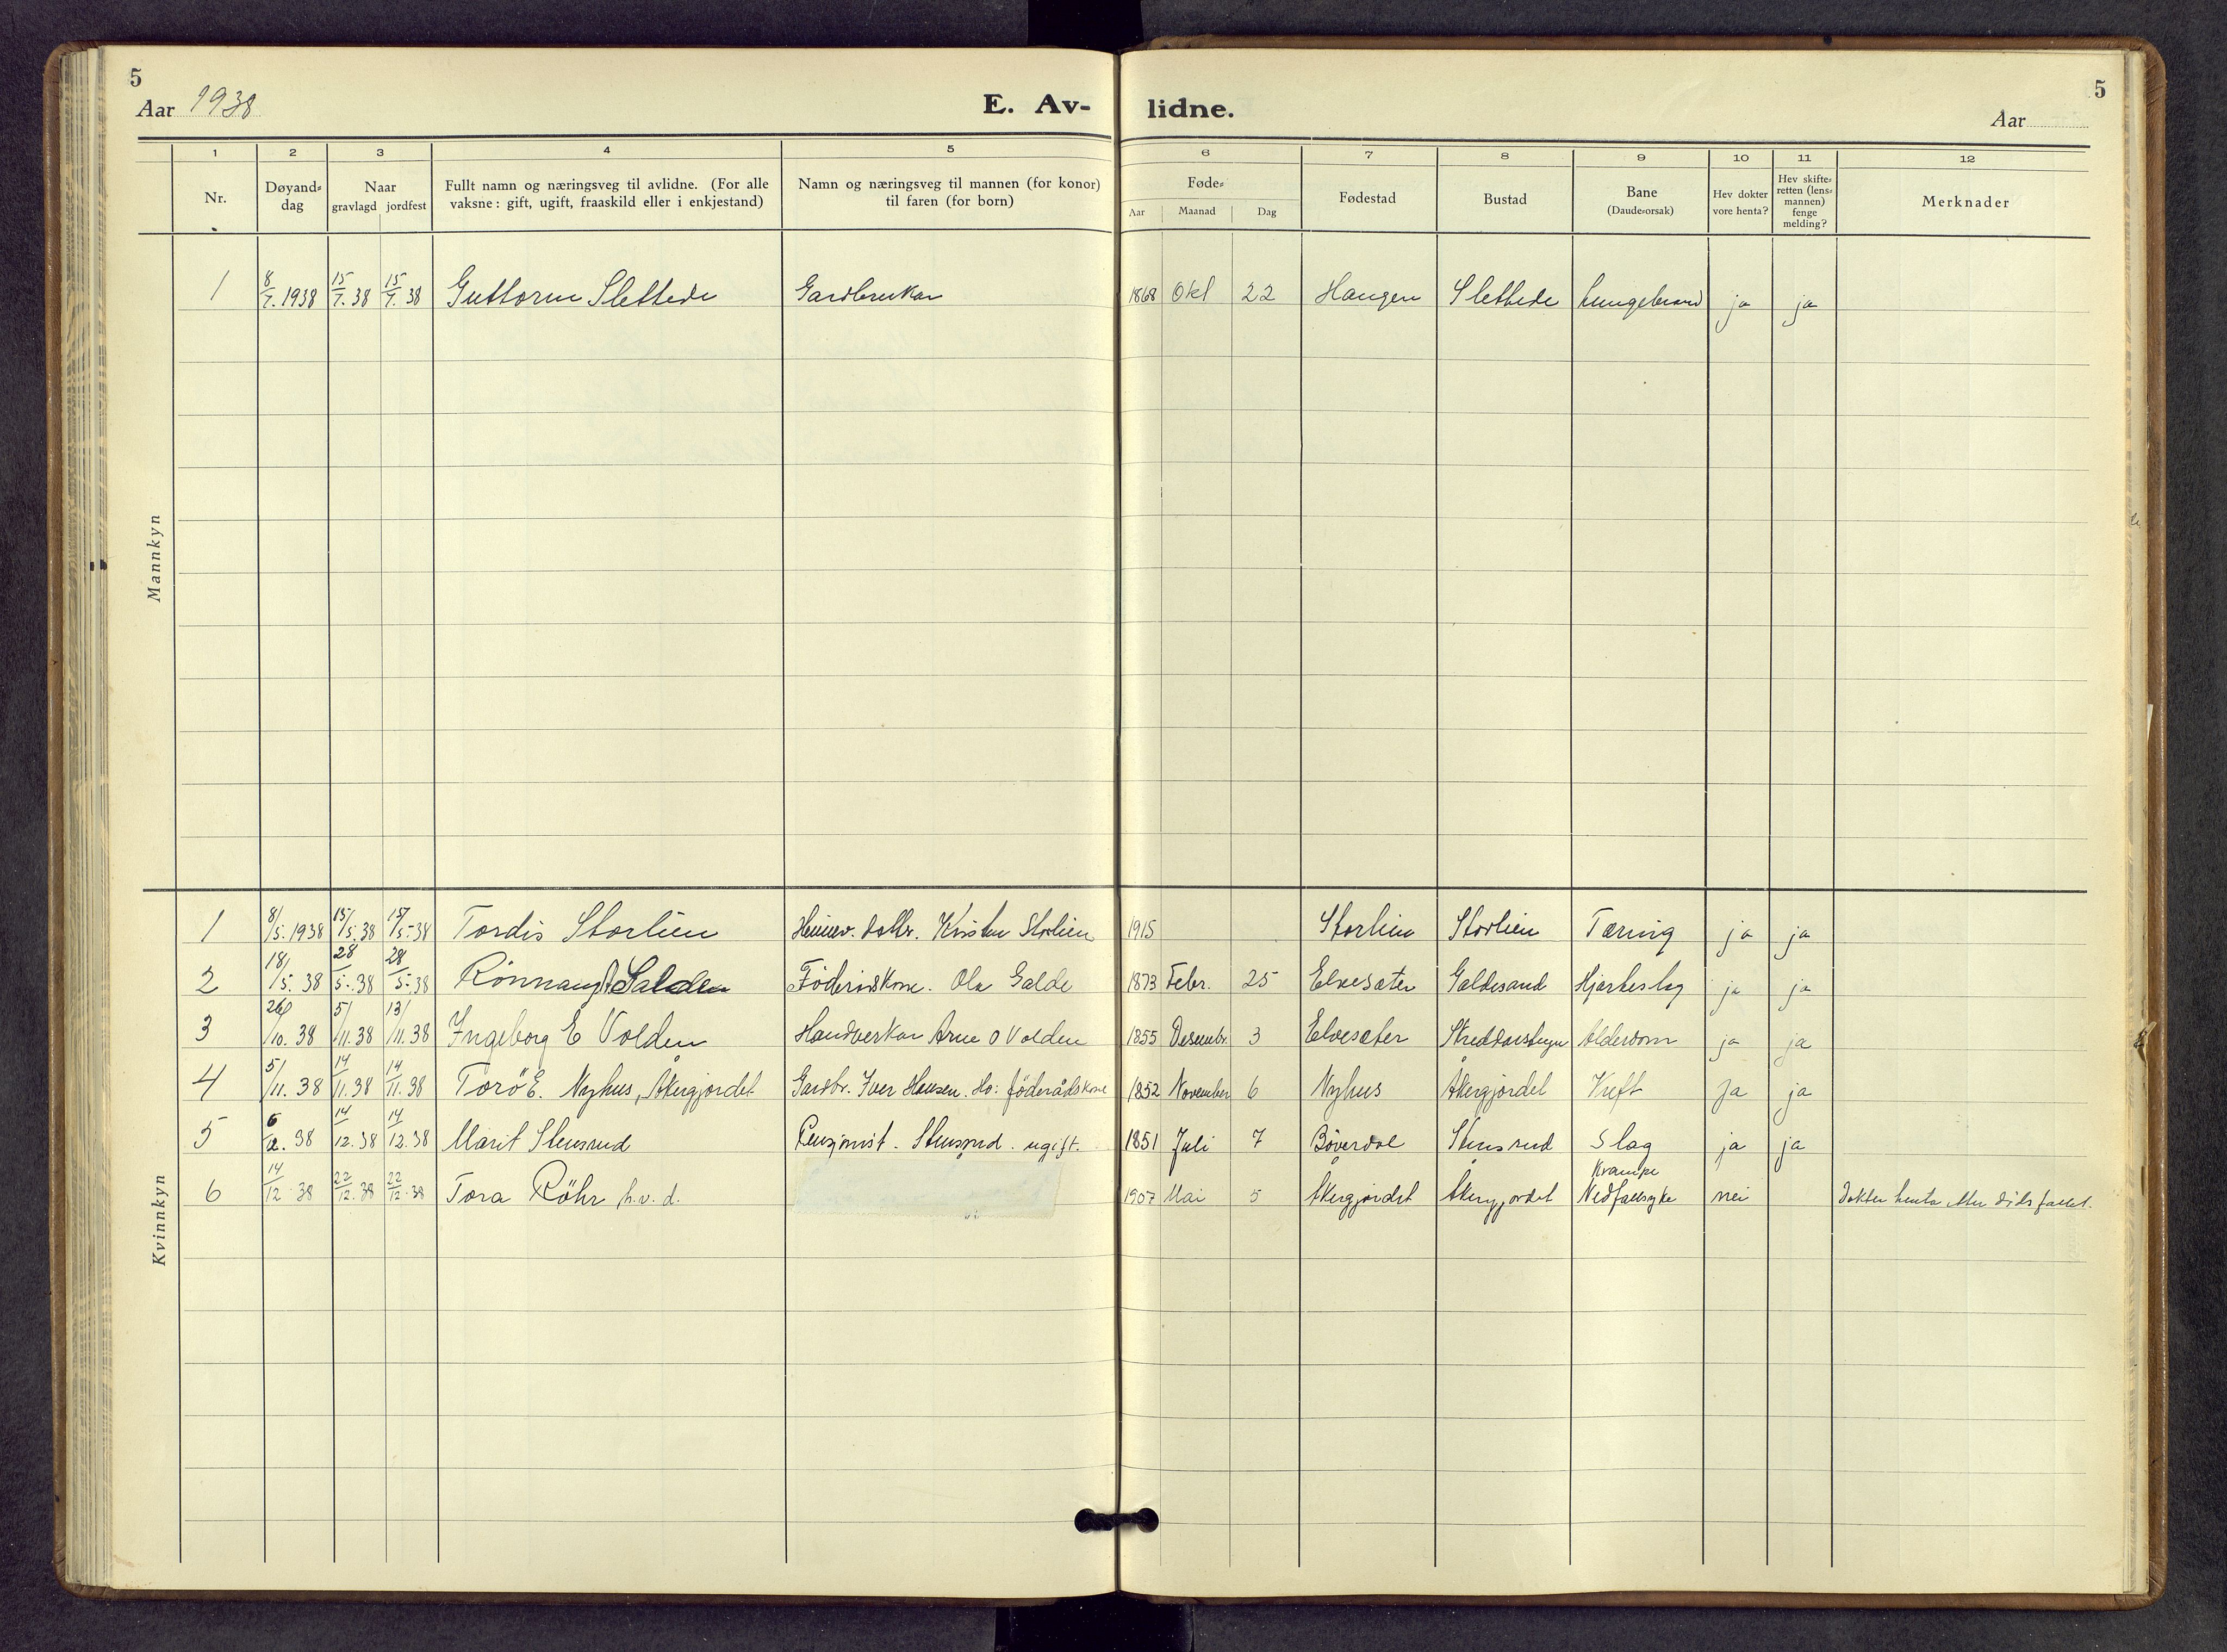 5
Aar 1938
E. Av-
lidne.
5
Aar
1 2 3 4 5 6 7 8 9 10 11 12
Nr.
Døyand-
dag
Naar
gravlagd jordfest
Fullt namn og næringsveg til avlidne. (For alle
vaksne: gift, ugift, fraaskild eller i enkjestand)
Namn og næringsveg til mannen (for konor)
til faren (for born)
Føde-
Aar Maanad Dag
Fødestad
Bustad
Bane
(Daude-orsak)
Hev dokter
vore henta?
Hev skifte-
retten (lens-
mannen)
fenge
melding?
Merknader
Mannkyn
1 8/7. 1938 15/7. 38 15/7. 38 Guttorm Slettede Gardbrukar 1868 Okt 22 Haugen Slettede Lungebrand ja ja
Kvinnkyn
1 8/5. 1938 15/5. 38 15/5. 38 Tordis Storlien Heimev. dotter. Kristen Storlien 1915 Storlien Storlien Tæring ja ja
2 18/5. 38 28/5. 38 28/5. 38 Rønnaug Galde Føderådskone. Ola Galde 1873 Febr. 25 Elvesæter Galdesand Hjarteslag ja ja
3 26/10. 38 5/11. 38 13/11. 38 Ingeborg E Volden Handverkar Arne O Volden 1855 Desembr. 3 Elvesæter Alderdom ja ja
4 5/11. 38 14/11. 38 14/11. 38 Torö E. Nyhus, Åkergjordet Gardbr. Iver Hansen. Ho: föderådskone 1852 November 6 Nyhus Åkergjordet Kreft ja ja
5 6/12. 38 14/12. 38 14/12. 38 Marit Stensrud Pensjonist. Stensrud. ugift. 1851 Juli 7 Bøverdal Stensrud Slag ja ja
6 14/12 38 22/12. 38 22/12. 38 Tora Röhr h.v.d. 1907 Mai 5 Åkergjordet Åkergjordet Krampe Nedfallsyke nei Dokter henta etter dødsfallet.